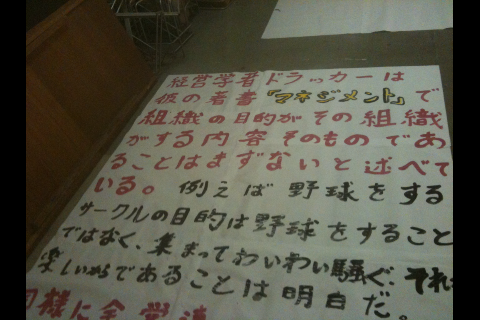 経営学者ドラッカーは
彼の著書『マネジメント』で
組織の目的がその組織
がする内容そのものであ
ることはまずないと述べて
いる。例えば野球をする
サークルの目的は野球をすること
ではなく、集まってわいわい騒ぐ、それが
楽しいからであることは明白だ。
同様に全学連